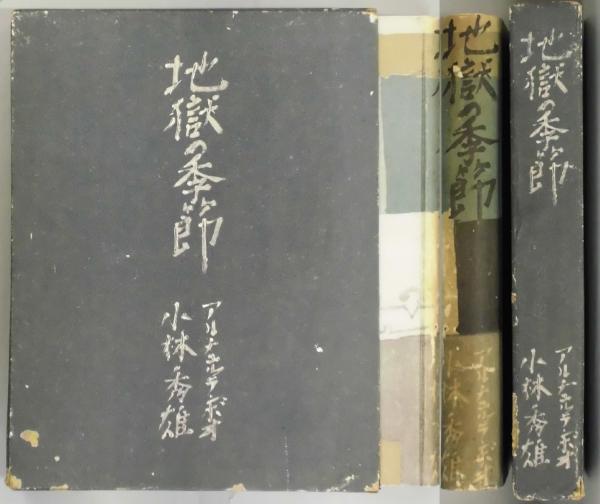 地獄の季節
アルチュルランボオ
小林秀雄
地獄の季節
アルチュルランボオ
小林秀雄
地獄の季節
アルチュルランボオ
小林秀雄